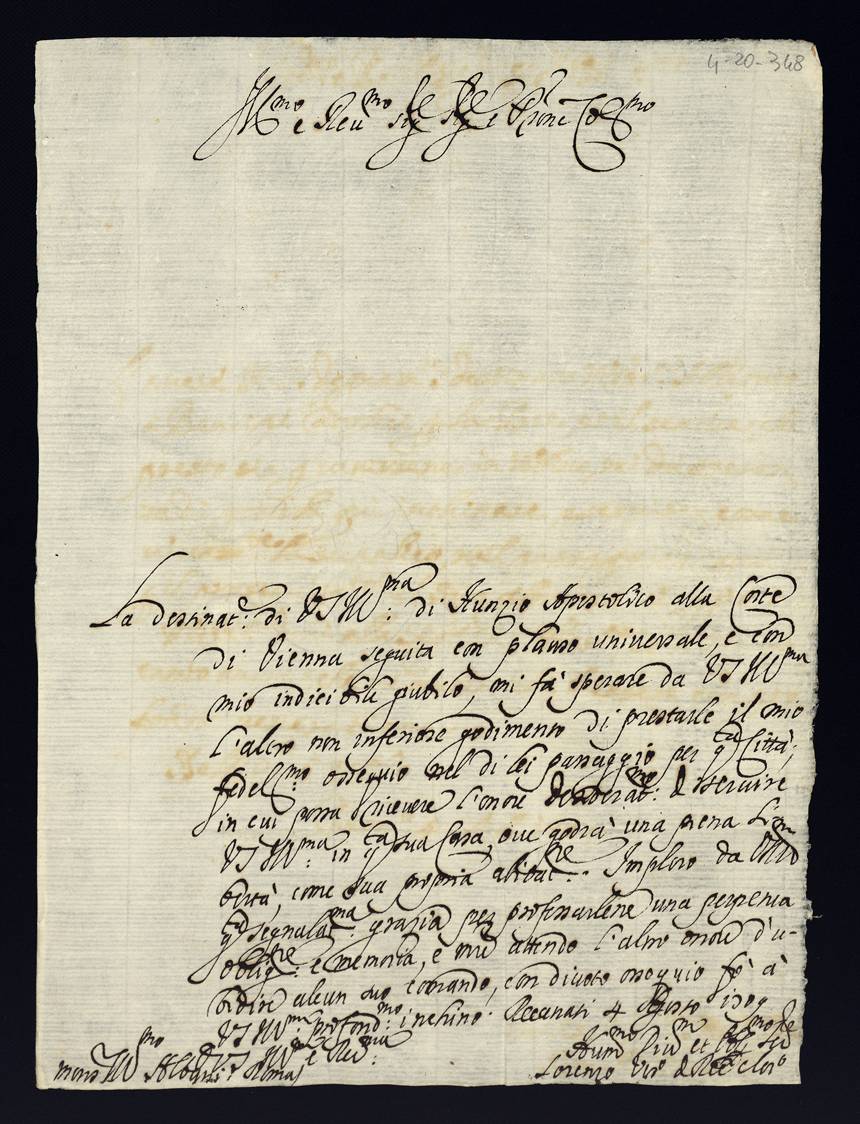 4-20-348
Ill.mo e Reu.mo Sig.re Sig.re e P.rone Col.mo
La destinat.e: di VS Ill.ma: di Nunzio Apostolico alla Corte
di Vienna seguita con plauso universale, e con
mio indicibile giubilo, mi fà sperare da VS Ill.ma
l'altro non inferiore godimento di prestarle il mio
fedel.mo ossequio nel di lei passaggio per q.ta Città,
in cui possa ricevere l'onore desiderat.mo: di servire
VS Ill.ma: in q.ta sua Casa, ove godrà una piena li-
bertà, come sua propria abitat.ne. Imploro da VS Ill.ma
q.ta segnalat.ma grazia per professarlene una perpetua
oblig.ne: e memoria, e me attendo l'altro onore d'u-
bidire alcun suo comando, con divoto ossequio fò à
VS Ill.ma profond.mo: inchino. Recanati 4 Agosto 1709
VS Ill.ma e Reu.ma:
Hum.mo Div.mo et Obl.mo Se.re
Mons.r Ill.mo Albani: Roma
Lorenzo